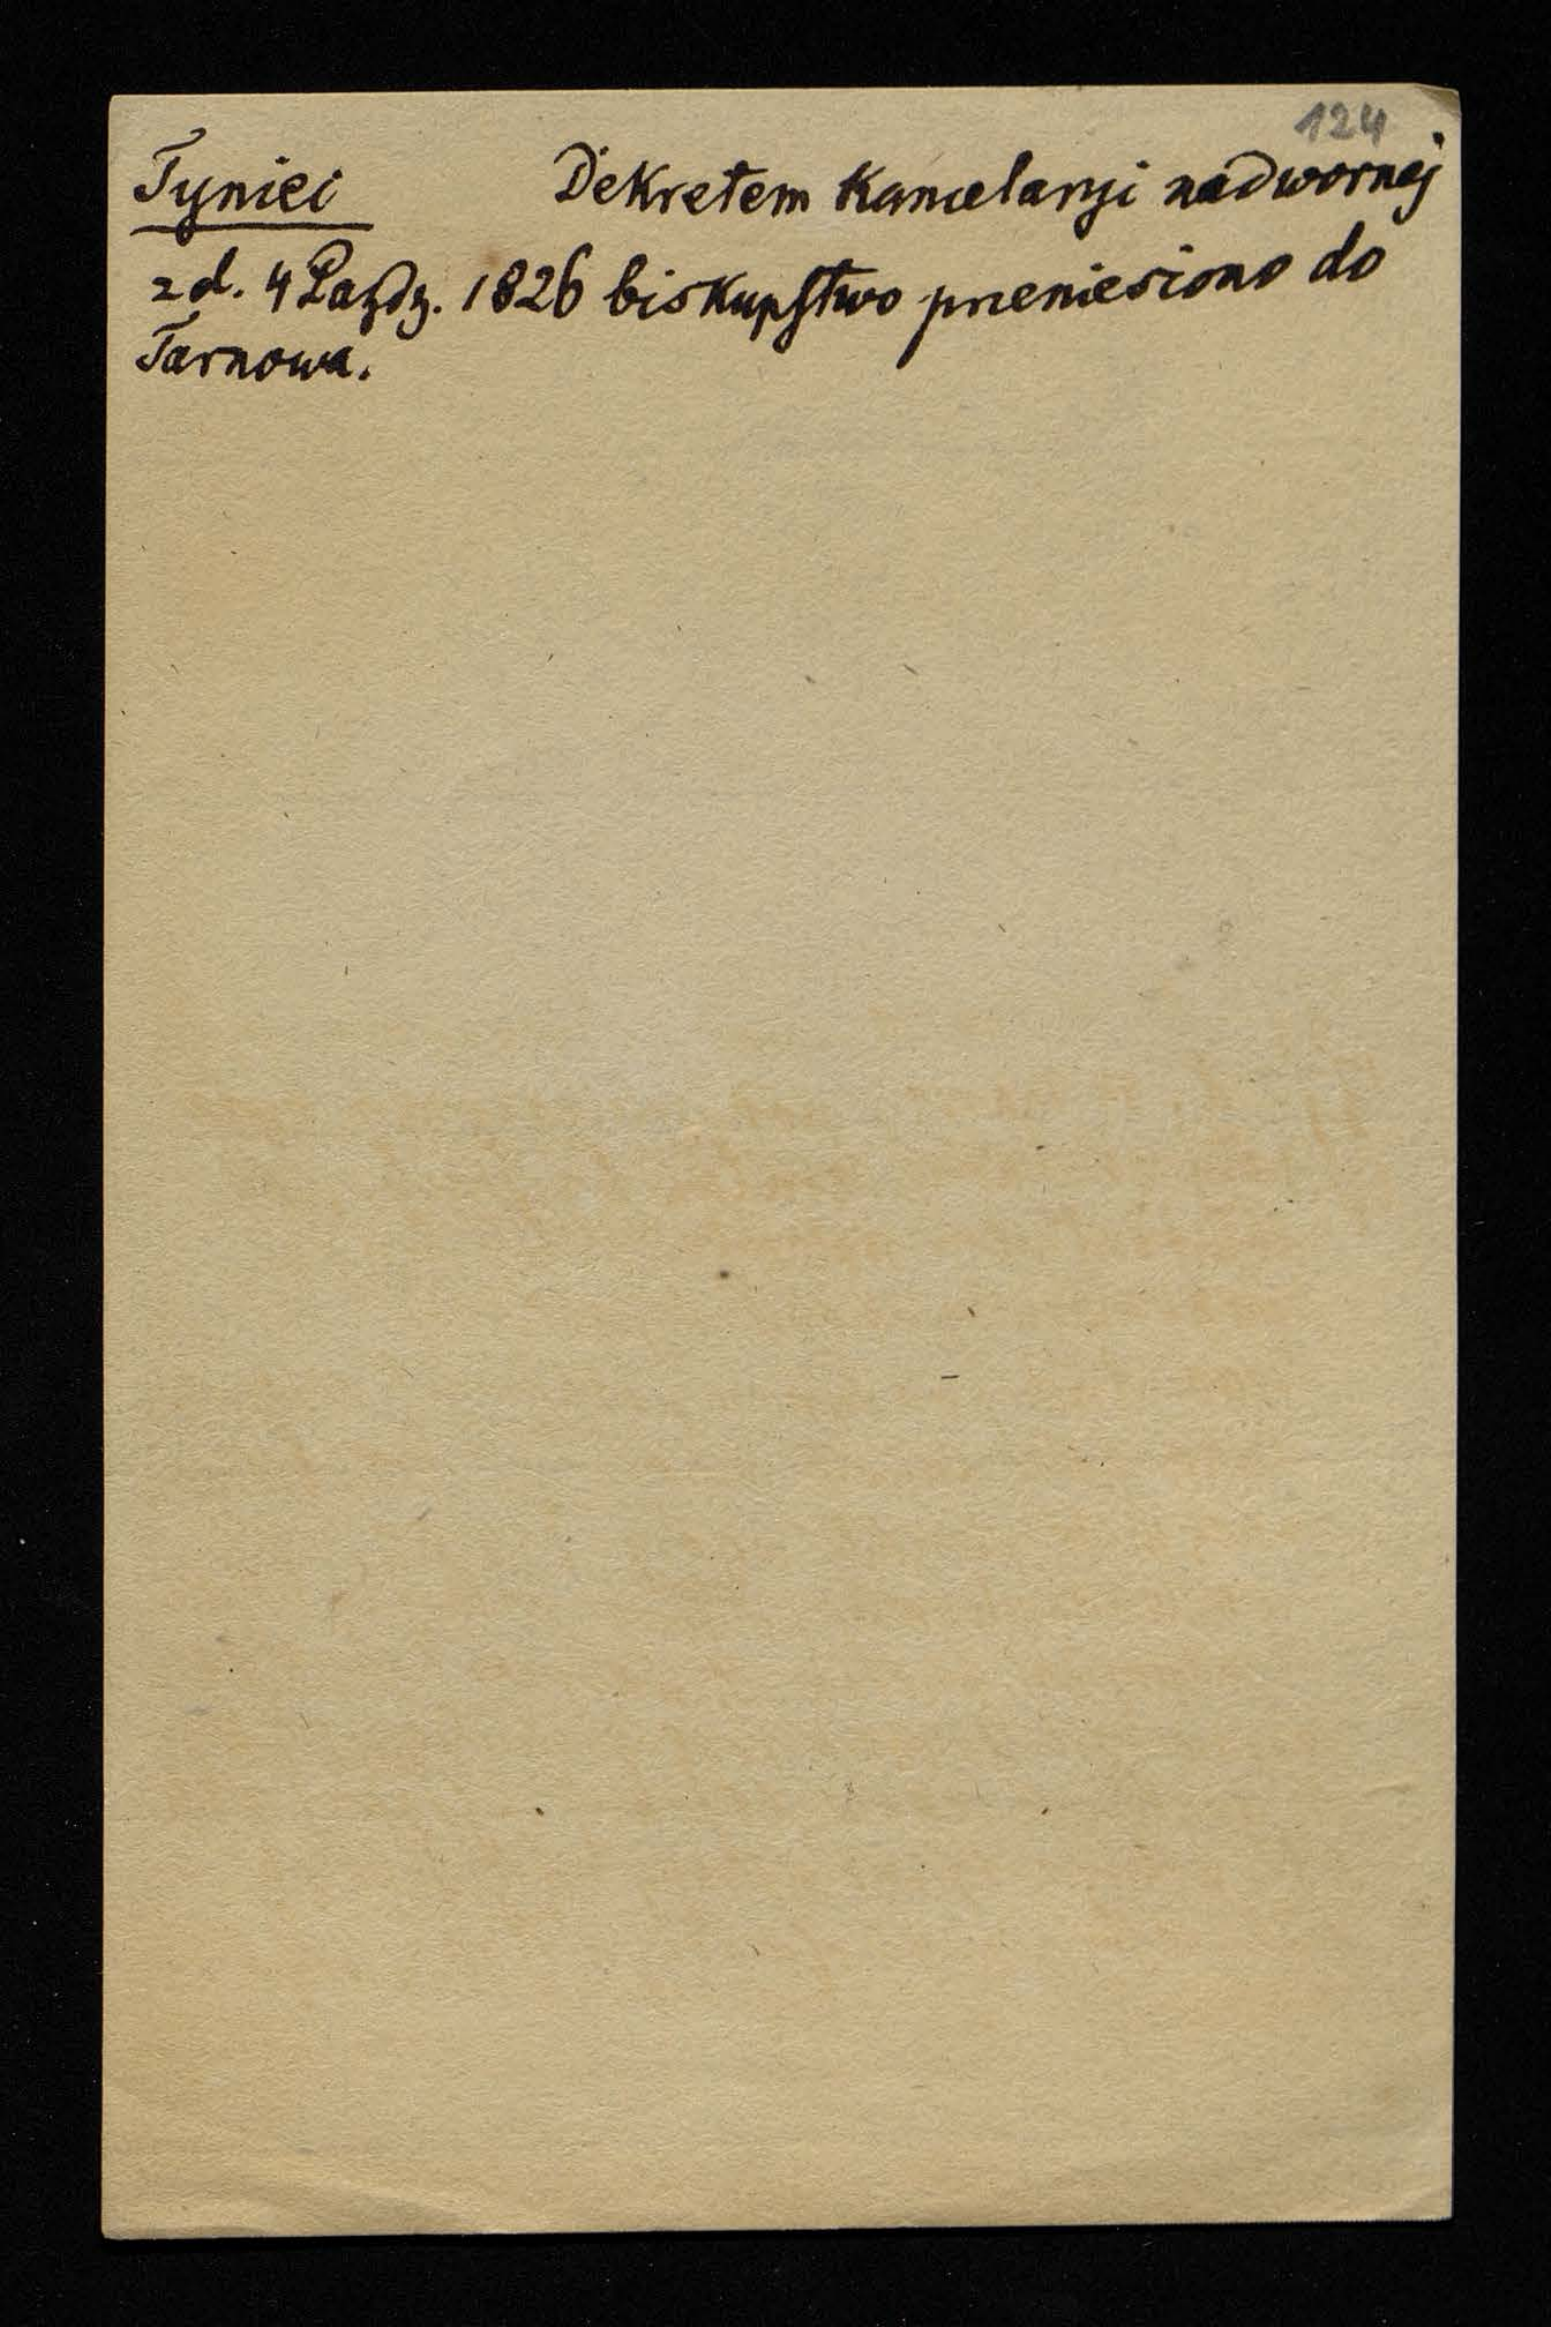 124
Tyniec Dekretem Kancelaryi nadwornej
z d. 4 Pazdz. 1826 biskupstwo przeniesiono do
Tarnowa.